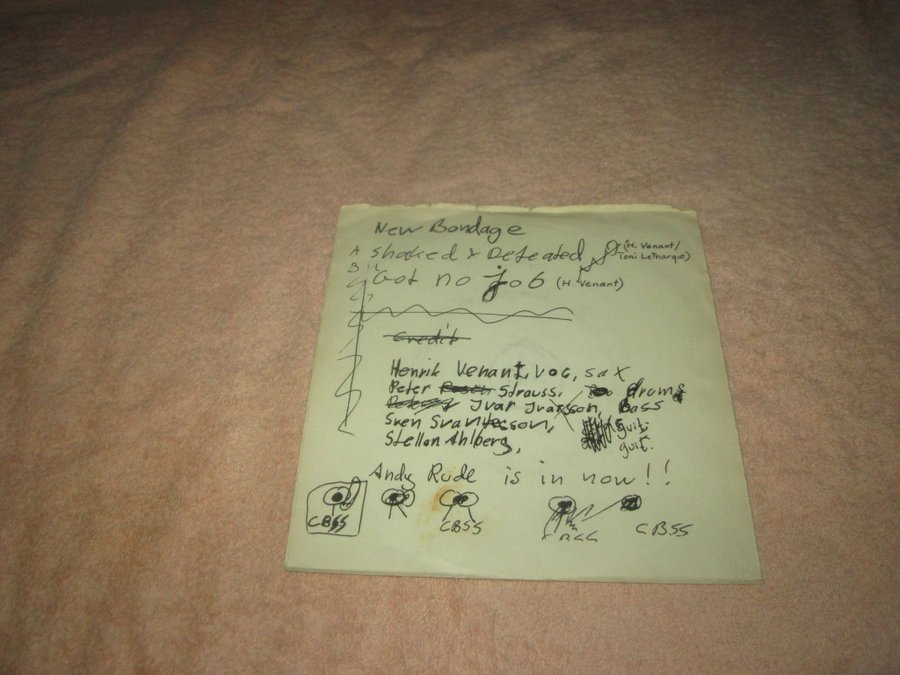 New Bondage
A Shaked & Defeated (H. Venant/
Toni Letharque)
B Got no job (H. Venant)
Credit
Henrik Venant, voc, sax
Peter Strauss, drums
Ivar Ivarsson, Bass
Sven Svantesson, guit.
Stellan Ahlberg, guit.
Andy Rude is in now!!
CBSS CBSS CBSS